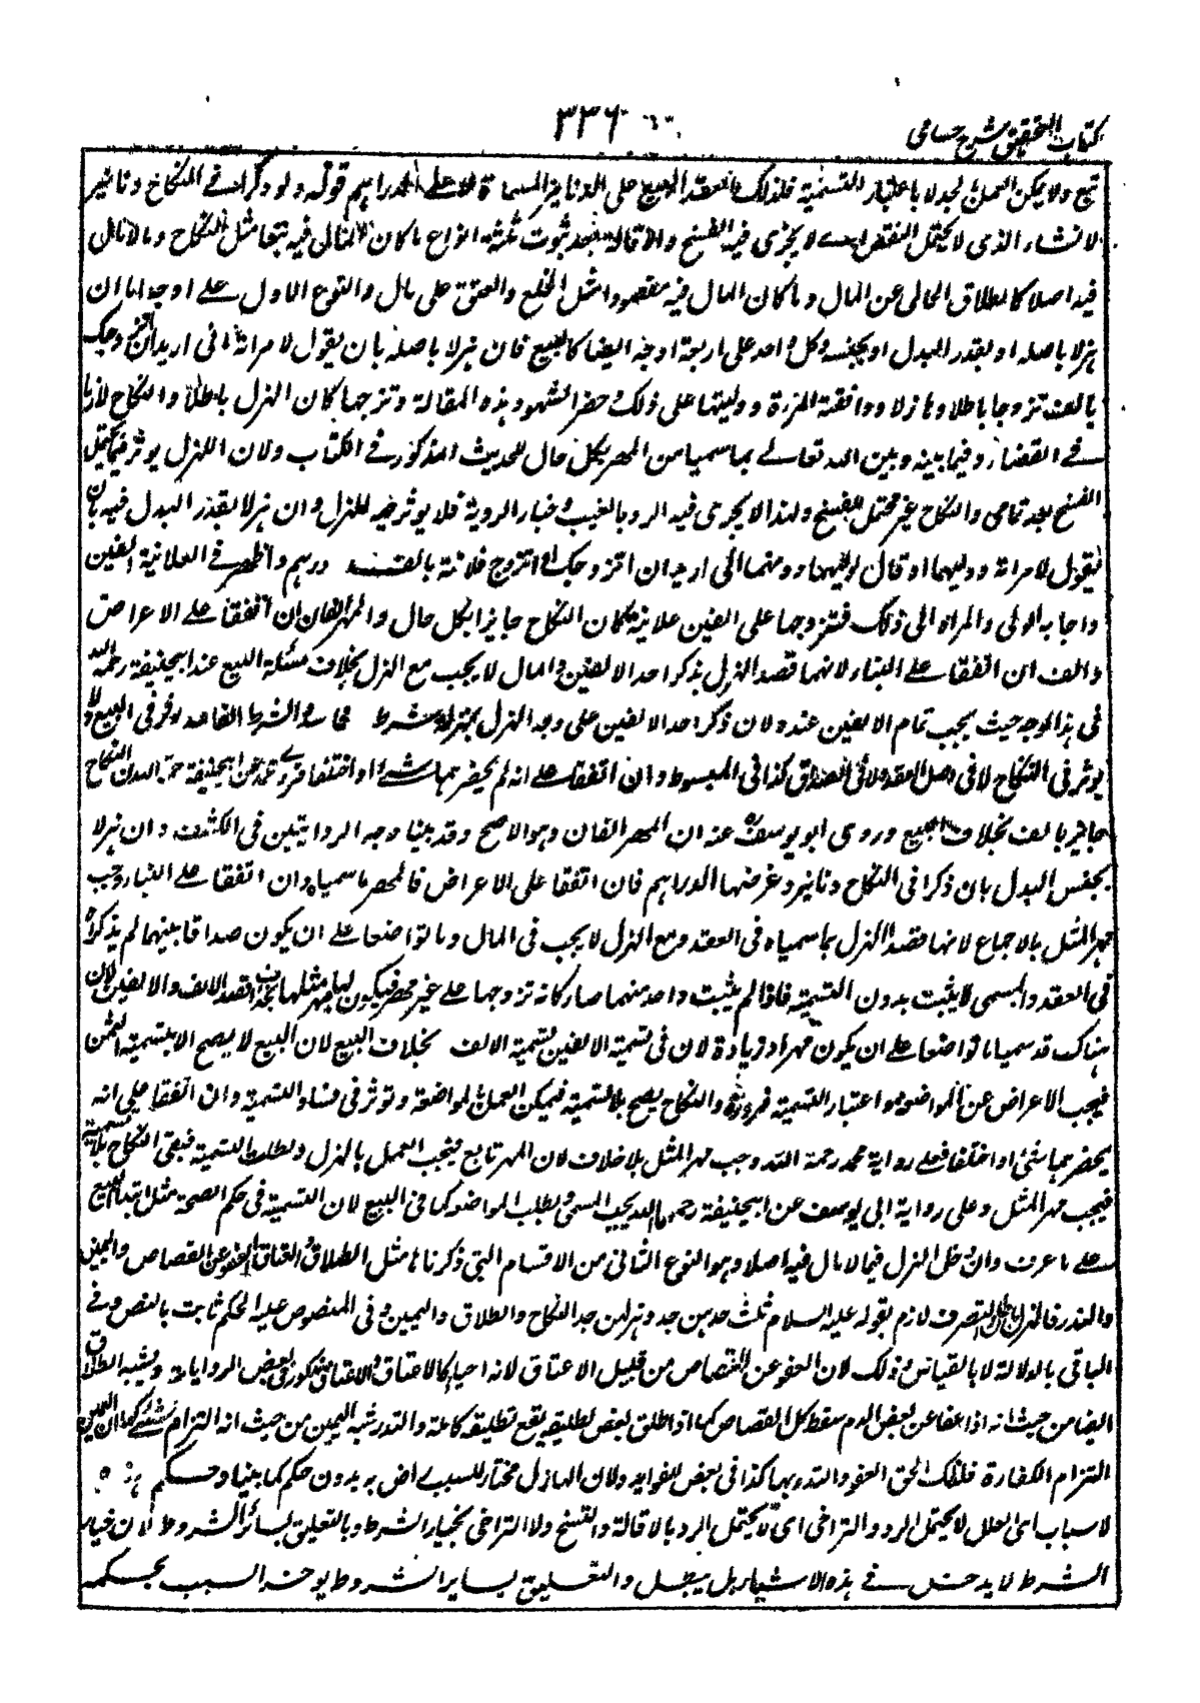 كتاب التحقيق شرح حسامى
٣٣٦
تبع ولا يمكن العمل بالجد لا باعتبار التسمية فلذلك انعقد البيع على الدنانير المسماة لا على الدراهم قوله ولو ذكرا فى النكاح دنانير
لانشاء الذى لا يحتمل النقض اى لا يجرى فيه الفسخ والاقالة بعد ثبوته ثلثة انواع ما كان المال فيه تبعا مثل النكاح وما لا مال
فيه اصلا كالطلاق الخالى عن المال وما كان المال فيه مقصودا مثل الخلع والعتق على مال والنوع الاول على اوجه اما ان
هزلا باصله او بقدر البدل او بجنسه وكل واحد على اربعة اوجه ايضا كالبيع فان هزلا باصله بان يقول لامرأة انى اريد ان اتزوجك
بالف تزوجا باطلا وهازلا ووافقته المرأة ووليها على ذلك وحضر الشهود هذه المقالة وتزوجها كان الهزل باطلا والنكاح لازما
فى القضاء وفيما بينه وبين الله تعالى بما سميا من المهر بكل حال للحديث المذكور فى الكتاب ولان الهزل يوثر فيما يحتمل
الفسخ بعد تمامه والنكاح غير محتمل للفسخ ولهذا لا يجرى فيه الرد بالعيب وخيار الروية فلا يوثر فيه الهزل وان هزلا بقدر البدل فيه بان
يقول لامرأة ووليها او قال لوليها دونها انى اريد ان اتزوجك او اتزوج فلانة بالف درهم واظهر فى العلانية الفين
واجابه الولى والمرأة الى ذلك فتزوجها على الفين علانية كان النكاح جائزا بكل حال والمهر الفان ان اتفقا على الاعراض
والف ان اتفقا على البناء لانهما قصدا الهزل بذكر احد الالفين والمال لا يجب مع الهزل بخلاف مسئلة البيع عند ابيحنيفة رحمه الله
فى هذا الوجه حيث يجب تمام الالفين عنده لان ذكر احد الالفين على وجه الهزل بمنزلة شرط فاسد والشرط الفاسد يوثر فى البيع ولا
يوثر فى النكاح لا فى اصل العقد ولا فى الصداق كذا فى المبسوط وان اتفقا على انه لم يحضرهما شئ او اختلفا فروى محمد عن ابيحنيفة رحمه الله ان النكاح
جائز بالف بخلاف البيع وروى ابو يوسف عنه ان المهر الفان وهو الاصح وقد بينا وجه الروايتين فى الكشف وان هزلا
بجنس البدل بان ذكرا فى النكاح دنانير وغرضهما الدراهم فان اتفقا على الاعراض فالمهر ما سمياه وان اتفقا على البناء وجب
مهر المثل بالاجماع لانهما قصدا الهزل بما سمياه فى العقد ومع الهزل لا يجب فى المال وما تواضعا على ان يكون صداقا بينهما لم يذكراه
فى العقد والمسمى لا يثبت بدون التسمية فاذا لم يثبت واحد منهما صار كانه تزوجها على غير مهر فيكون لها مهر مثلها بخلاف قصد الالف والالفين لان
هناك قد سميا ما تواضعا على ان يكون مهرا وزيادة لان فى تسمية الالفين تسمية الالف بخلاف البيع لان البيع لا يصح الا بتسمية الثمن
فيجب الاعراض عن المواضعة واعتبار التسمية ضرورة والنكاح يصح بلا تسمية فيمكن العمل بالمواضعة وتوثر فى فساد التسمية وان اتفقا على انه
يحضرهما شئ او اختلفا فعلى رواية محمد رحمة الله وجب مهر المثل بلا خلاف لان المهر تابع فيجب العمل بالهزل وبطلت التسمية فبقى النكاح بلا تسمية
فيجب مهر المثل وعلى رواية ابى يوسف عن ابيحنيفة رحمهما الله يجب المسمى وبطلت المواضعة كما فى البيع لان التسمية فى حكم الصحة مثل ابتداء البيع
على ما عرف وان دخل الهزل فيما لا مال فيه اصلا وهو النوع الثانى من الاقسام التى ذكرناها مثل الطلاق والعتاق والعفو عن القصاص واليمين
والنذر فالهزل باطل والتصرف لازم بقوله عليه السلام ثلث جدهن جد وهزلهن جد النكاح والطلاق واليمين وفى المنصوص عليه الحكم ثابت بالنص وفى
الباقى بالدلالة لا بالقياس وذلك لان العفو عن القصاص من قبيل الاعتاق لانه احياء كالاعتاق والاعتاق مذكور فى بعض الروايات ويشبه الطلاق
ايضا من حيث انه اذا عفا عن بعض الدم سقط كل القصاص كما اذا طلق بعض تطليقة يقع تطليقة كاملة والنذر شبه اليمين من حيث انه التزام شئ كما ان اليمين
التزام الكفارة فلذلك الحق العفو والنذر بها كذا فى بعض الفوايد ولان الهازل مختار للسبب راض به بدون حكم كما بينا وحكم هذه
لاسباب اى العلل لا يحتمل الرد والتراخى اى لا يحتمل الرد بالاقالة والفسخ ولا التراخى بخيار الشرط وبالتعليق بسائر الشروط لان خيار
الشرط لا يدخل فى هذه الاشياء بل يبطل والتعليق بساير الشروط يوخر السبب بحكمه